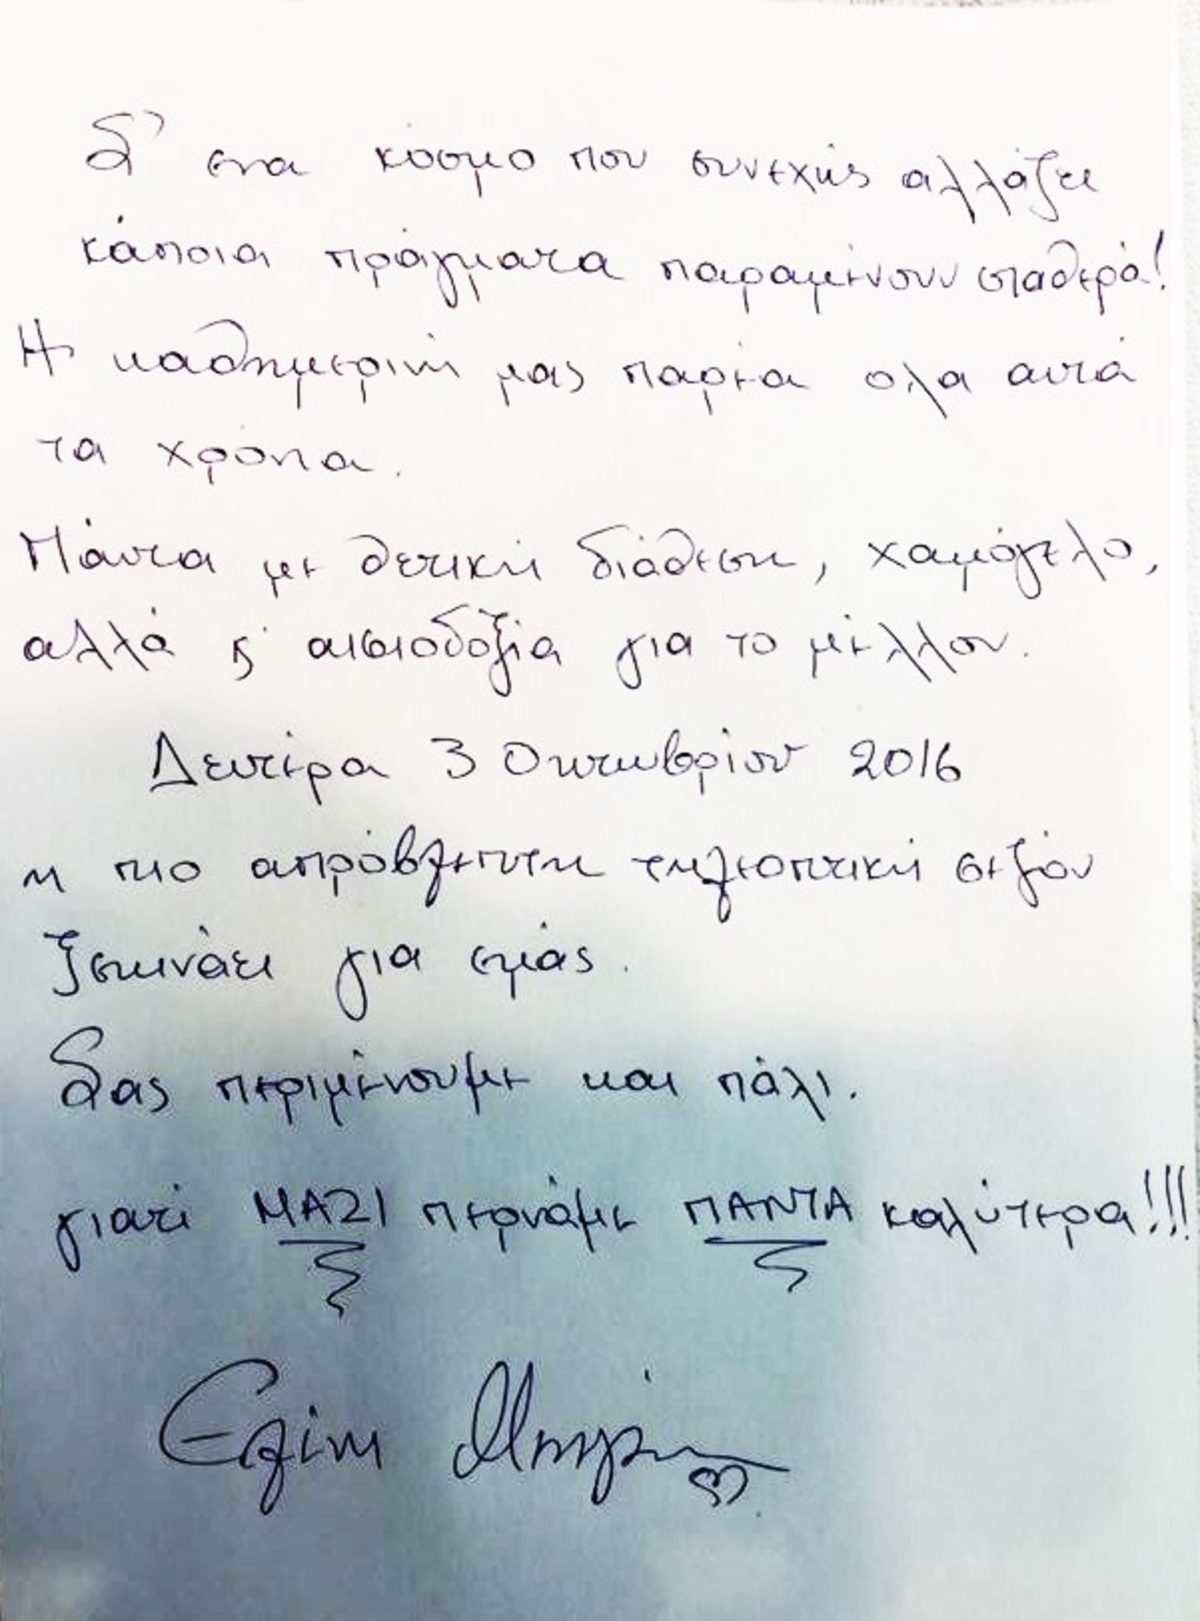 Σ' ενα κόσμο που συνεχώς αλλάζει
κάποια πράγματα παραμένουν σταθερά!
Η καθημερινή μας παρέα ολα αυτά
τα χρόνια.
Πάντα με θετική διάθεση, χαμόγελο,
αλλά κ' αισιοδοξία για το μέλλον.
Δευτέρα 3 Οκτωβρίου 2016
η πιο απρόβλεπτη τηλεοπτική σεζόν
ξεκινάει για εμάς.
Σας περιμένουμε και πάλι.
γιατί ΜΑΖΙ περνάμε ΠΑΝΤΑ καλύτερα!!!
Ελένη